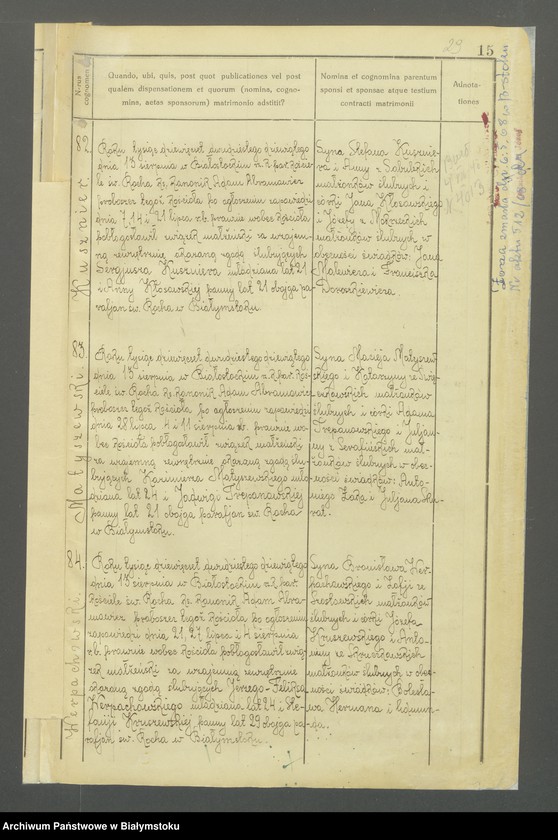 29
15
N-rus cognomen
Quando, ubi, quis, post quot publicationes vel post
qualem dispensationem et quorum (nomina, cogno-
mina, aetas sponsorum) matrimonio adstitit?
Nomina et cognomina parentum
sponsi et sponsae atque testium
contracti matrimonii
Adnota-
tiones
Kusznier
Roku tysiąc dziewięćset dwudziestego dziewiątego
dnia 13 sierpnia w Białostockim rz. k. par. koście-
le św. Rocha ks. kanonik Adam Abramowicz
proboszcz tegoż kościoła po ogłoszeniu zapowiedzi
dnia 7, 14 i 21 lipca r. b. prawnie wobec kościoła
pobłogosławił związek małżeński za wzajem-
ną zewnętrznie okazaną zgodą ślubujących
Sergjusza Kuszniera młodziana lat 21
i Anny Kłosowskiej panny lat 21 obojga pa-
rafjan św. Rocha w Białymstoku.
Syna Stefana Kusznie-
ra i Anny z
małżonków ślubnych i
córki Jana Kłosowskiego
i Józefy z
małżonków ślubnych w
obecności świadków: Jana
i Franciszka
Doroszkiewicza.
83.
Matyszewski
Roku tysiąc dziewięćset dwudziestego dziewiątego
dnia 13 sierpnia w Białostockim rz. k. par. koś-
ciele św. Rocha ks. kanonik Adam Abramowicz
proboszcz tegoż kościoła po ogłoszeniu zapowiedzi
dnia 28 lipca 4 i 11 sierpnia r. b. prawnie wo-
bec kościoła pobłogosławił związek małżeński
za wzajemną zewnętrznie okazaną zgodą ślu-
bujących Kazimierza Matyszewskiego mło-
dziana lat 24 i Jadwigi Trepanowskiej
panny lat 21 obojga parafjan św. Rocha
w Białymstoku.
Syna Macieja Matyszew-
skiego i Katarzyny ze
małżonków
ślubnych i córki Adama
Trepanowskiego i Juljan-
ny z Serafińskich mał-
żonków ślubnych w obec-
ności świadków: Anto-
niego i Juljana
84.
Werpachowski
Roku tysiąc dziewięćset dwudziestego dziewiątego
dnia 15 sierpnia w Białostockim rz. k. par.
kościele św. Rocha ks. kanonik Adam Abra-
mowicz proboszcz tegoż kościoła po ogłoszeniu
zapowiedzi dnia 21, 27 lipca i 4 sierpnia
r. b. prawnie wobec kościoła pobłogosławił zwią-
zek małżeński za wzajemną zewnętrznie
okazaną zgodą ślubujących Jerzego-Feliksa
Werpachowskiego młodziana lat 24 i Ste-
fanji Kruszewskiej panny lat 29 obojga pa-
rafjan św. Rocha w Białymstoku.
Syna Bronisława Wer-
pachowskiego i Zofji ze
małżonków
ślubnych i córki Józefa
Kruszewskiego i Anto-
niny ze
małżonków ślubnych w obec-
ności świadków: Bolesła-
wa Hermana i Zygmun-
Archiwum Państwowe w Białymstoku